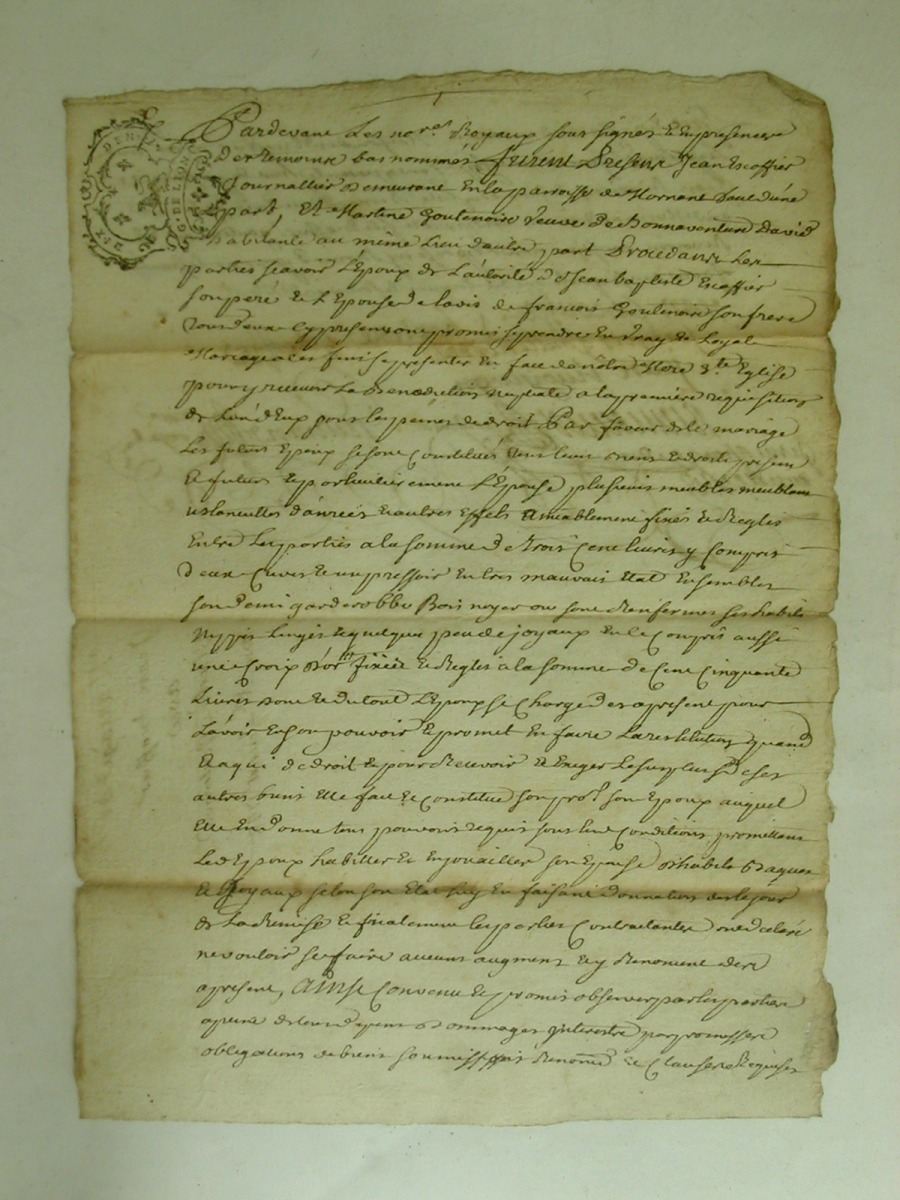 G. DE LION
Pardevant Les no.res Royaux sous signés & En presence
des temoins bas nommés furent Presens Jean Escoffier
Journallier demeurant En la parroisse de Mornant d'une
part, Et Martine Goutenoire veuve de Bonnaventure David
habitante au même Lieu d'autre part Procedant Les
parties scavoir L'Epoux de L'autorité de Jean baptiste Escoffier
son pere & L'Epouse de lavis de francois Goutenoire son frere
tous deux cy presents ont promis se prendre En vray & Loyal
Mariage a ces fins se presenter En face de nôtre Mere S.te Eglise
pour y recevoir La Benediction Nuptiale a la premiere requisition
de L'un d'Eux sous les peines de droit Par faveur de ce mariage
Les futurs Epoux se sont Constitués tous leurs Biens & droits presens
& futurs & particulierement L'Epouse plusieurs meubles meublans
ustancilles danrées & autres Effets amiablement fixés & Reglés
Entre Les parties a la somme de trois Cent livres y Compris
deux Cuves & un pressoir En tres mauvais Etat Ensembles
son demi garderobbe Bois noyer ou sont Renfermes ses habits
Nippes Linges & quelque peu de joyaux En ce Compris aussi
une Croix d'or fixées & Reglés a la somme de Cent Cinquante
Livres dont & du tout L'Epoux se Charge des a present pour
L'avoir En son pouvoir & promet En faire La restitution quand
& a qui de droit & pour Recevoir & Exiger Le surplus de ses
autres biens Elle fait & Constitue son pro.r son Epoux auquel
Elle En donne tous pouvoirs requis sous lad Conditions promettant
Led Epoux habiller & Enjouailler son Epouse d'habits Bagues
& Joyaux selon son Etat Luy En faisant Donnation des le jour
de La Remise & finalement les parties Contractantes ont declaré
ne vouloir se faire aucuns augment & y Renoncent des
a present, Ainsi Convenu & promis observer par les parties
a peine de tous depens dommages Interests par promesses
obligations de biens soumissions Renon.on & Clauses Requises